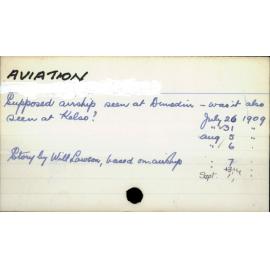 AVIATION
Supposed airship seen at Dunedin - was it also
seen at Kelso? July 26 1909
" 31 "
Aug 5 "
" 6 "
Story by Will Lawson, based on airship " 7
Sept. 1,